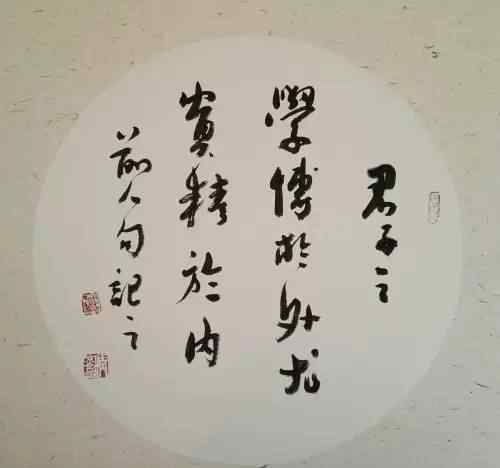 君子之
學博於外尤
貴精於内
前人句記之